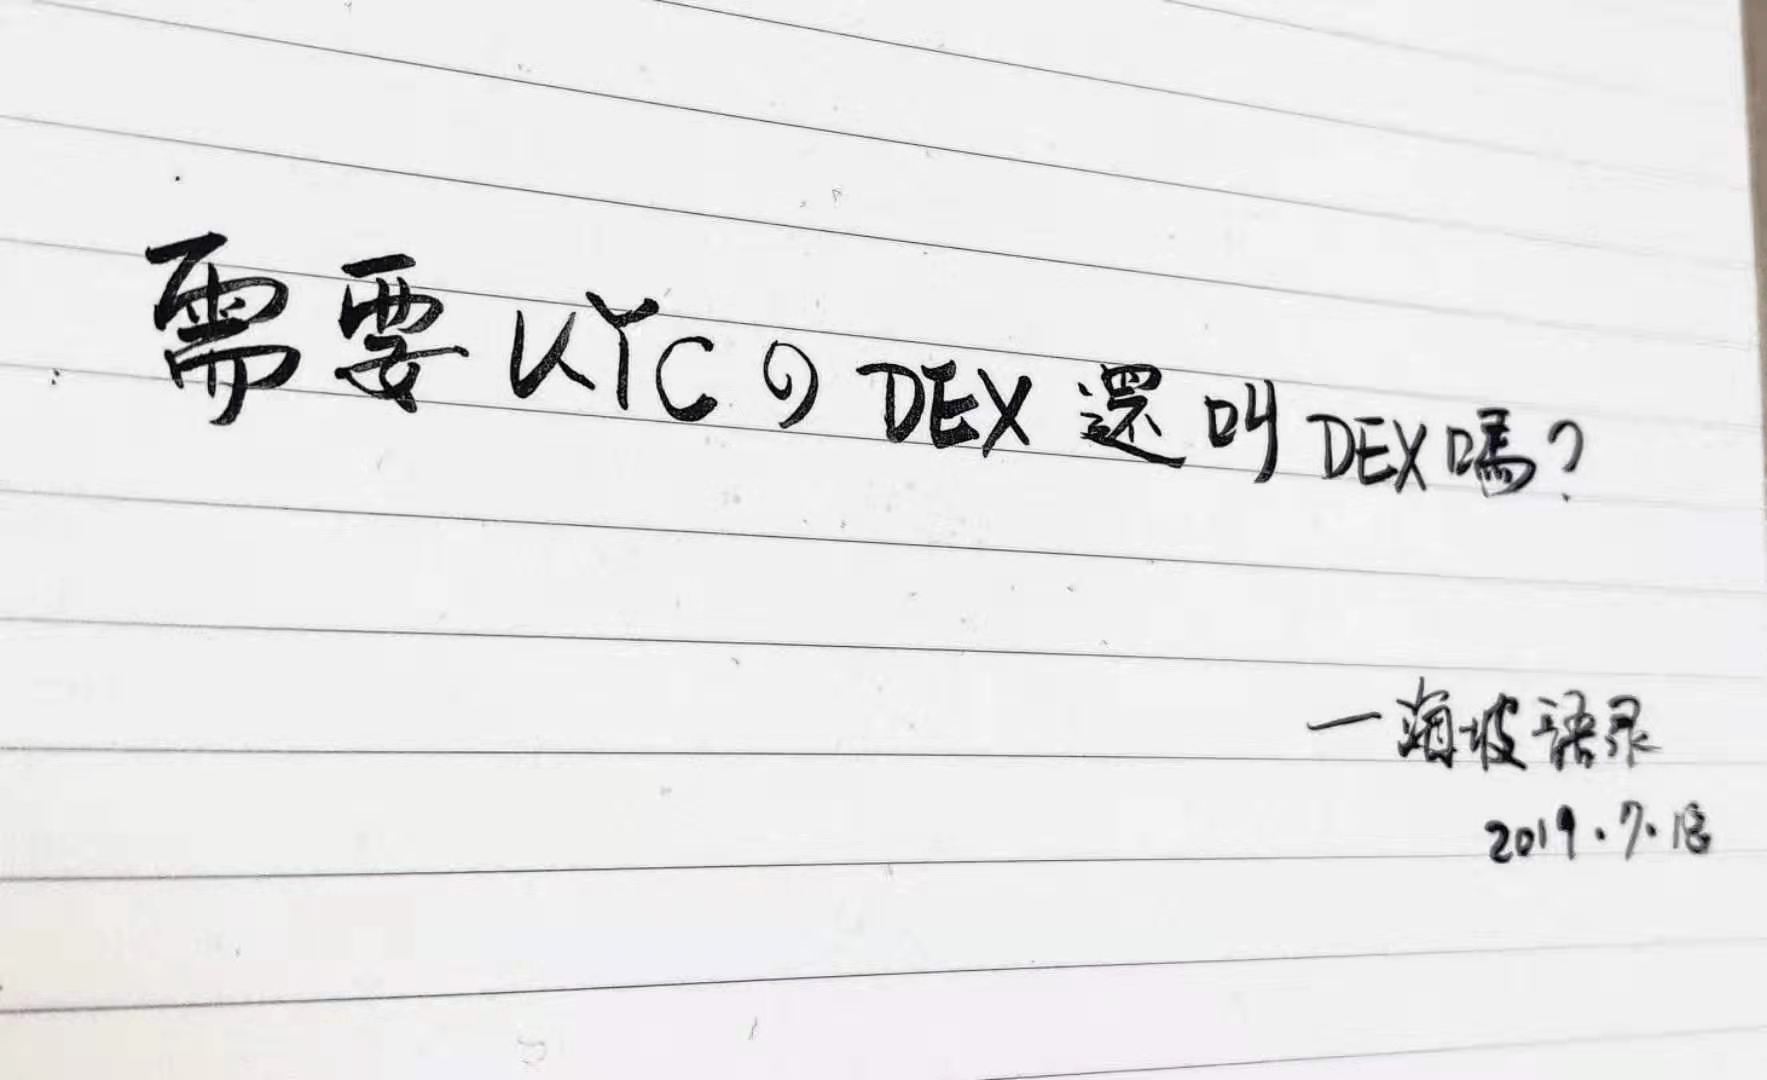 需要KYCの DEX 還叫 DEX 嗎？
一海坡语录
2019.7.18